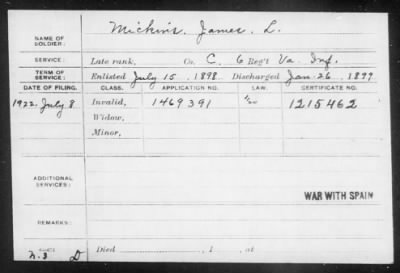 NAME OF SOLDIER: Mickins, James L.
SERVICE: Late rank, Co. C, 6 Reg't Va. Inf.
TERM OF SERVICE: Enlisted July 15, 1898. Discharged Jan. 26, 1899
DATE OF FILING. CLASS. APPLICATION NO. LAW. CERTIFICATE NO.
1922 July 8 Invalid, 1469391 1215462
Widow,
Minor,
ADDITIONAL SERVICES:
WAR WITH SPAIN
REMARKS:
Died , 1 , at